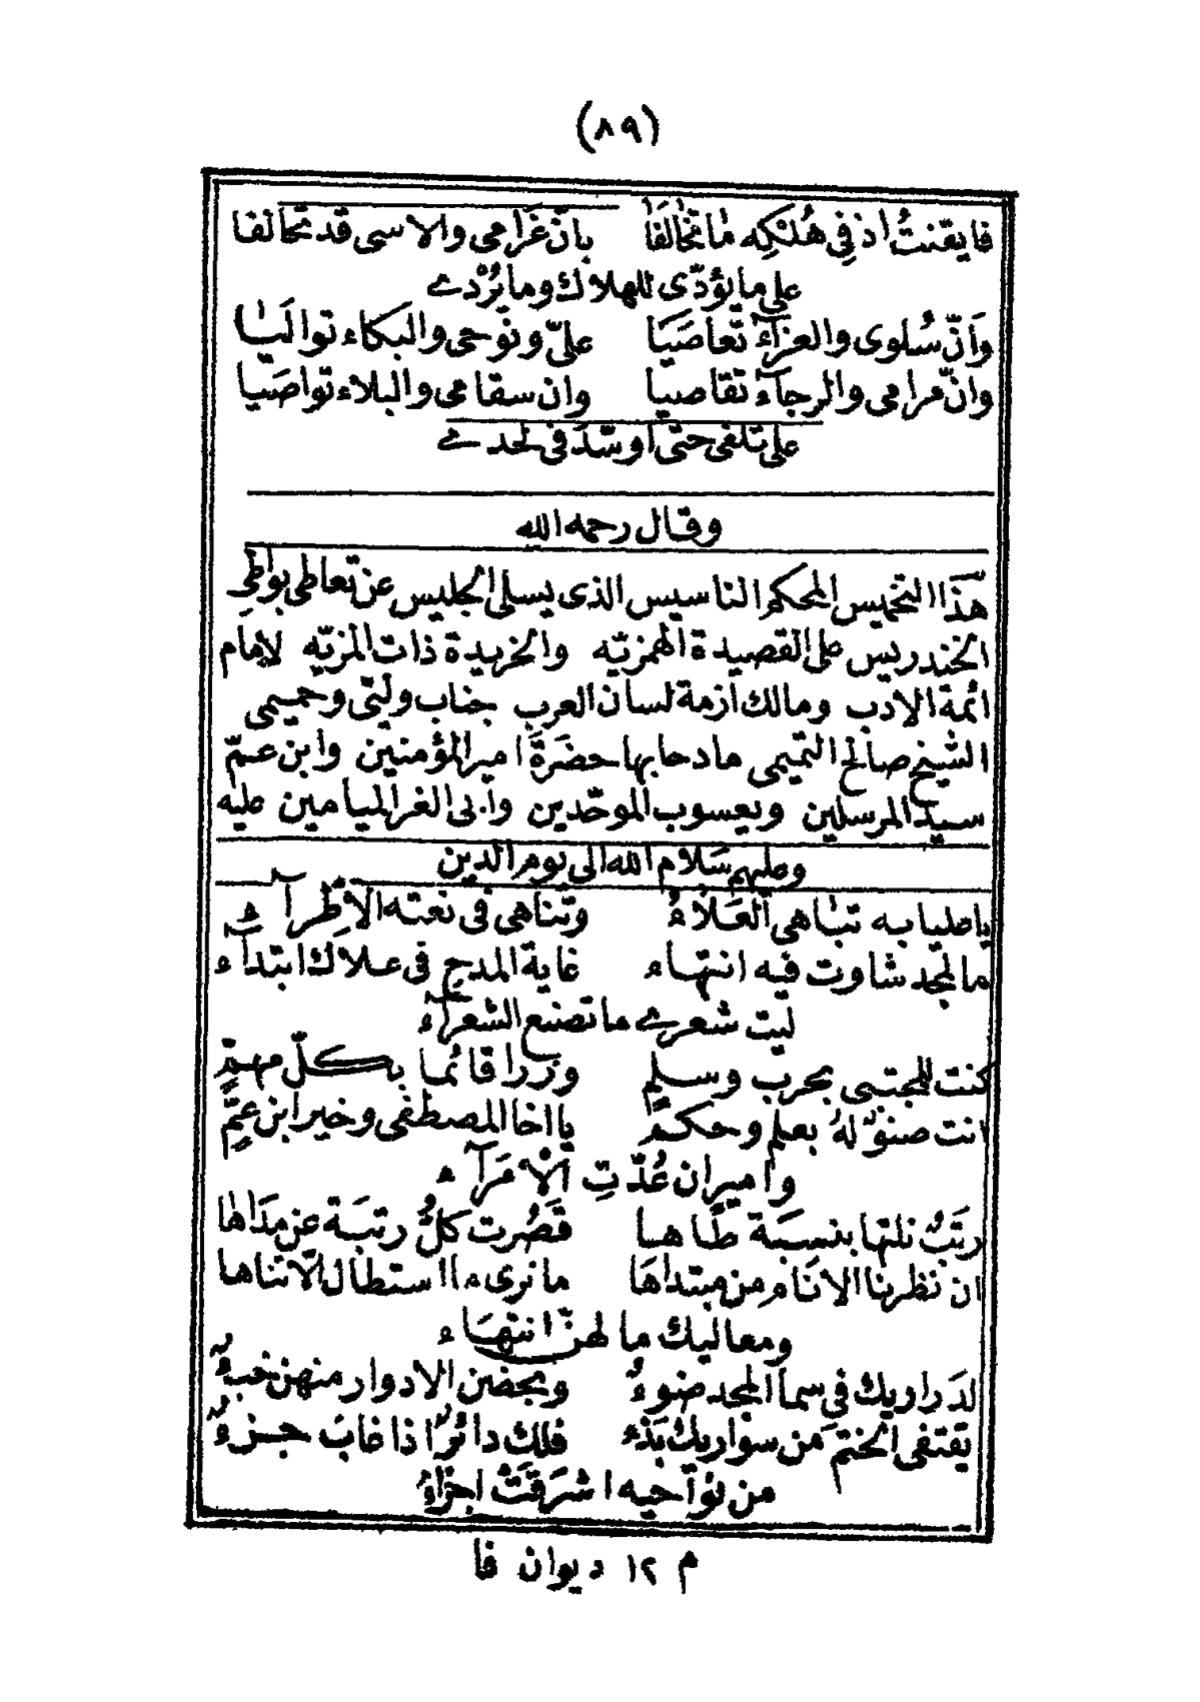 (٨٩)
فايقنتُ اذ فِي هُلْكِه ماتخالَفَا بانّ غَرامى والاسى قد تحالفا
على ما يؤدّى للهلاك وما يُرْدى
وَانّ سُلوى والعزآءَ تَعاصَيَا علىّ ونوحى والبكاء توالَيا
وانّ مرامى والرجآءَ تقاصيا وان سقامى والبلاء تواصَيا
على تلفى حتّى اوسّدَ فى لحدى
وقال رحمه الله
هذا التخميس المحكم التاسيس الذى يسلى الجليس عن تعاطى بواطى
الخندريس على القصيدة الهمزيّه والخريدة ذات المزيّه لامام
ائمة الادب ومالك ازمة لسان العرب جناب وليّى وحميمى
الشيخ صالح التميمى مادحا بها حضرَةَ امير المؤمنين وابن عمّ
سيد المرسلين ويعسوب الموحّدين وأبى الغر الميامين عليه
وعليهم سَلام الله الى يوم الدين
يا عليا به تباهى العَلاءُ وتناهى فى نعته الاطرآء
ما لمجد شاوت فيه انتهاء غاية المدح فى علاك ابتدآء
ليت شعرى ما تصنع الشعرآء
كنت للمجتبى بحرب وسلمٍ وزرا قائما بكلّ مهمّ
انت صنوٌ لهُ بعلم وحكمٍ يا اخا المصطفى وخير ابن عمٍّ
وامير ان عُدّتِ الْاُمَرآء
رتَبٌ نلتها بنسبَة طَاها قَصُرت كلُّ رتبَة عن مَدَاها
ان نظرنا الانَام من مبتداهَا ما نرى ما استطال الّا تناها
ومعاليك ما لهنّ انتهَاء
لدَراريك فى سما المجد ضوءٌ وبحضن الادوار منهن خبءٌ
يقتفى الختمَ من سواريك بَدْء فلك دائرٌ اذا غابَ جزءٌ
من نوآحيه اشرَقَتْ اجزَاءُ
م ١٢ ديوان فا